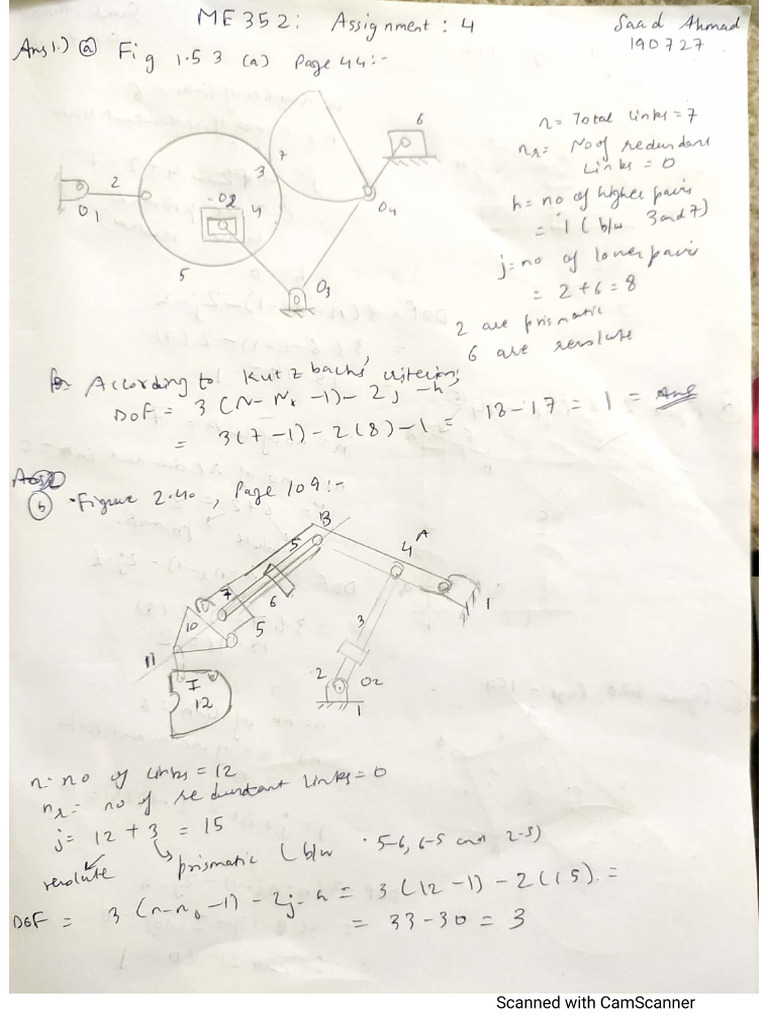 ME 352: Assignment : 4
Saad Ahmad
190727
Ans 1.) (a) Fig 1.53 (a) Page 44:-
n = Total links = 7
nr = No of redundant
links = 0
h = no of higher pairs
= 1 (b/w 3 and 7)
j = no of lower pairs
= 2 + 6 = 8
2 are prismatic
6 are revolute
6
7
3
2
O1
O2
4
O4
5
O3
According to Kutzbachs' criterion;
DOF = 3 (n - nr - 1) - 2j - h
= 3(7-1) - 2(8) - 1 = 18 - 17 = 1 = Ans
(b) Figure 2.40, Page 109:-
B
A
5
4
7
6
1
10
5
3
11
I
12
2
O2
1
n = no of links = 12
nr = no of redundant links = 0
j = 12 + 3 = 15
revolute prismatic (b/w 5-6, 6-5 and 2-3)
DOF = 3 (n - n0 - 1) - 2j - h = 3(12-1) - 2(15) =
= 33 - 30 = 3
Scanned with CamScanner